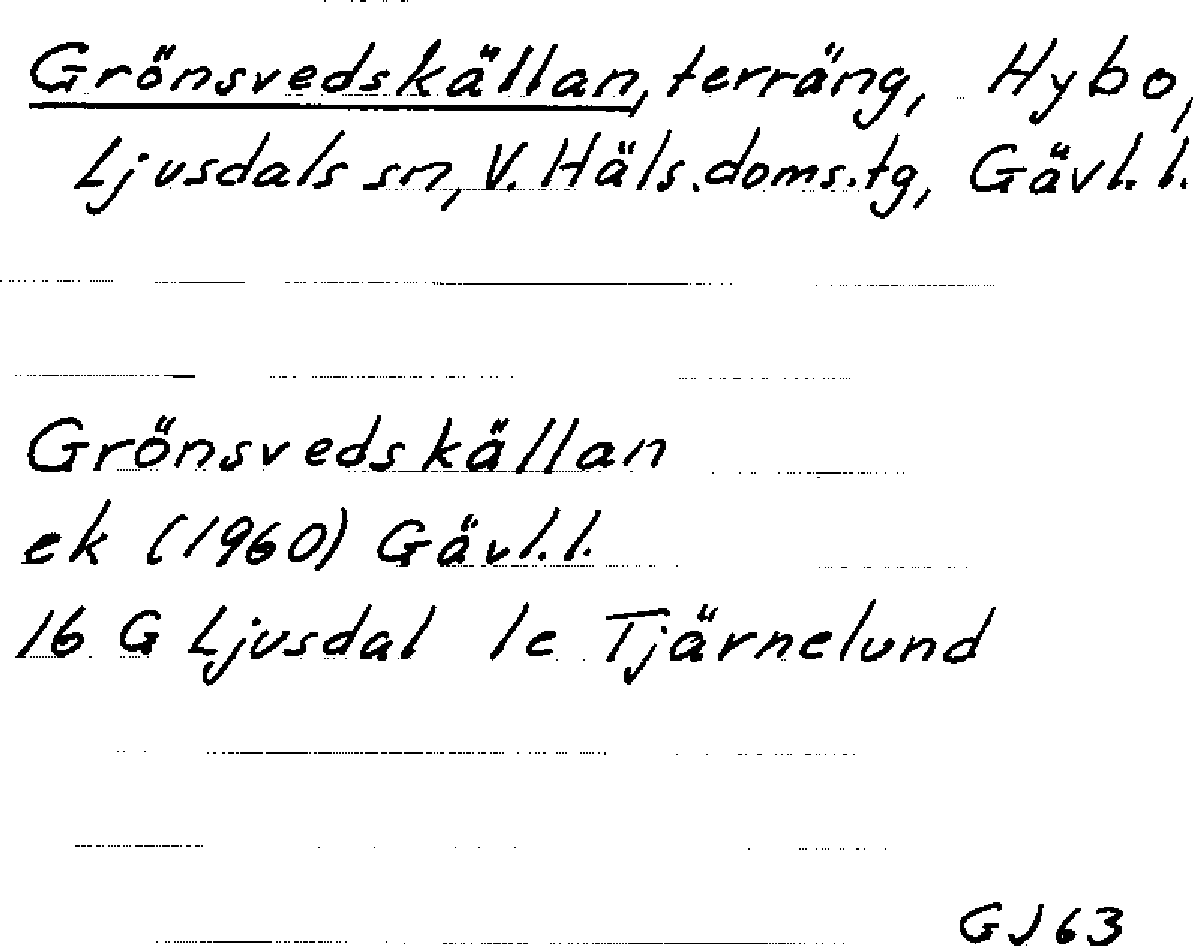 Grönsvedskällan, terräng, Hybo,
Ljusdals sn, V. Häls. doms. tg, Gävl. l.
Grönsvedskällan
ek (1960) Gävl. l.
16 G Ljusdal 1c Tjärnelund
GJ 63